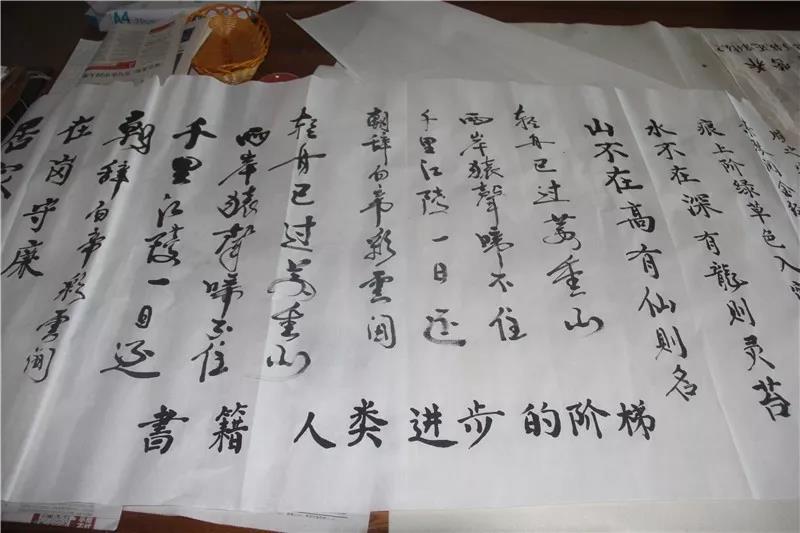 痕上阶绿草色入
水不在深有龍则灵苔
山不在高有仙则名
轻舟已过萬重山
两岸猿聲啼不住
千里江陵一日还
朝辞白帝彩雲间
轻舟已过萬重山
两岸猿聲啼不住
千里江陵一日还
朝辞白帝彩雲间
在岗守廉
居家
書籍人类进步的阶梯
A4